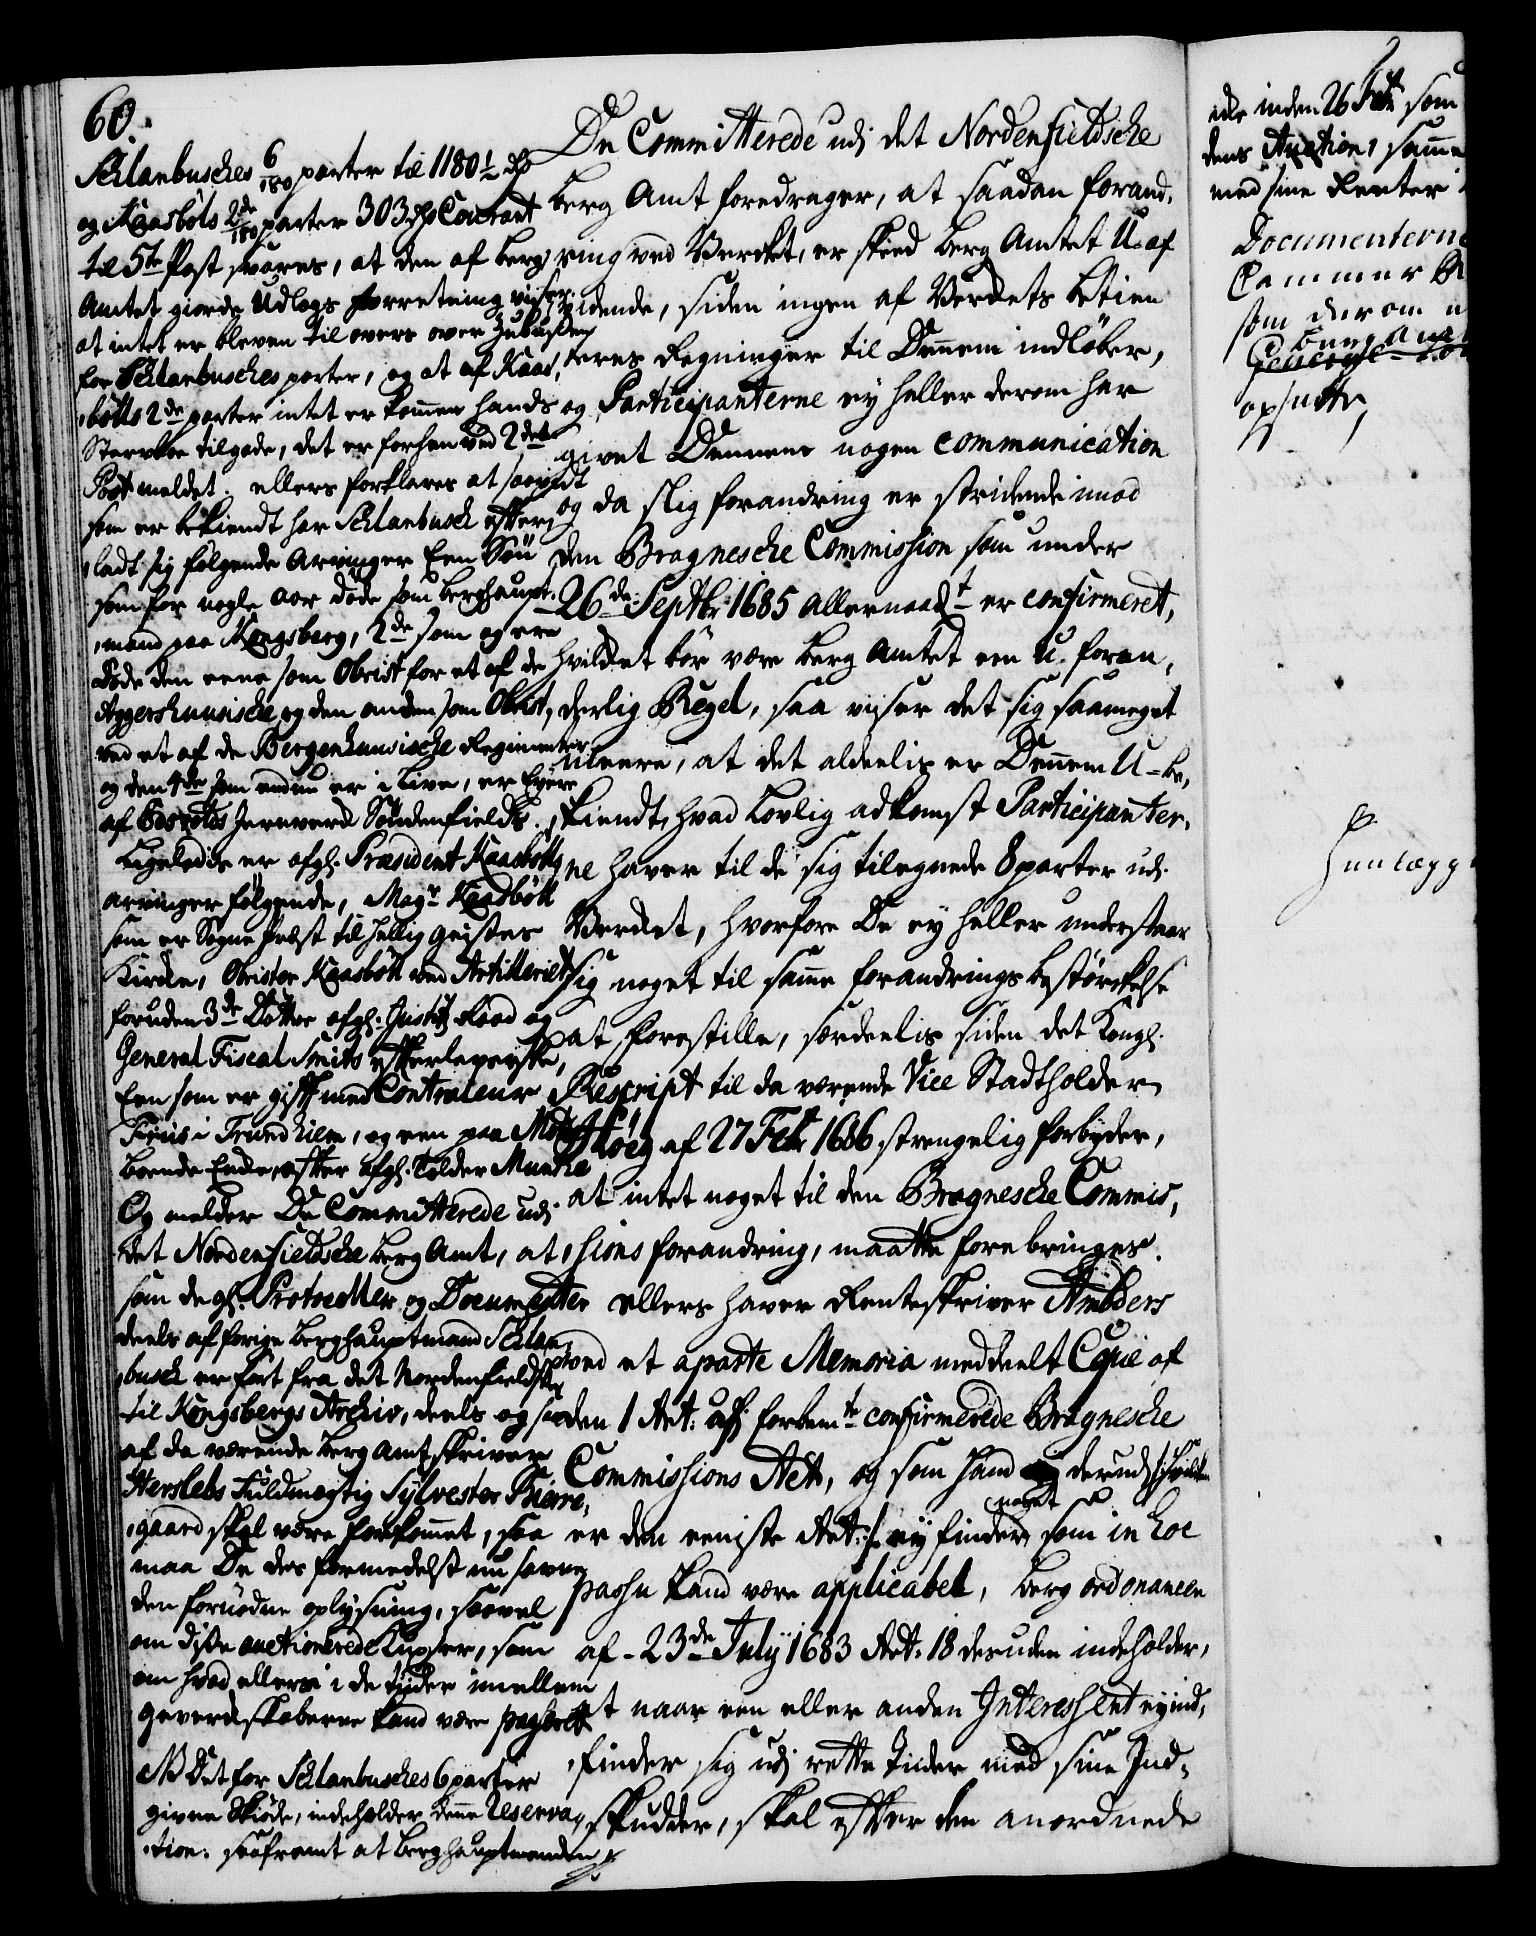 60.
Schlanbusches 6/180 parter til 1180½ Rd
og Kaasböls 2de/180 parter 303 Rd Courant
til 5te Post svares, at den af berg
Amtet giorde Udlogs forretning viiser
at intet er bleven til overs over Zubusden
for Schlanbusches parter, og at af Kaas,
bölls 2de parter intet er kommen hands
Sterboe tilgode, det er forhen ved 2det
Post meldet. ellers forklares at saavidt
som er bekiendt har Schlanbusch effter,
ladt sig følgende arvinger Een Søn
som for nogle aar døde som Berghaupt,
mand paa Kongsberg, 2de som og ere
døde den eene som Obrist for et af de
Aggershuusische og den anden som Obrist,
ved et af de Bergenhuusische Regimenter
og den 4de som endnu er i Live, er Eyere
af Fossotes Jernverck Søndenfields.
Ligeledes er afgl. Præsident Kaasbölls
arvinger følgende, Magr Kaasböll
som er Sogne Præst til Hellig geistes
Kirke, Obrister Kaasböll ved Artilleriet
foruden 3de Døttre afgl. Justitz Raad og
General Fiscal Smits effterleverske,
Een som er gifft med Controleur
Friis i Trundhiem, og een paa
boende Enke effter afgl. Tolder Munche
Og melder De Committerede udj
det Nordenfieldske berg Amt, at
som de gl. Protocoller og Documenter
deels af forige berghauptmand Schlan,
busch er ført fra det Nordenfieldske
til Kongsbergs Archiv, deels og siden
af da værende berg Amtskriver
Herslebs Fuldmegtig Sylvester Bierre,
gaard skal være forkommet, saa
maa De des formedelst nu savne
den fornødne oplysning, saavel
om disse auctionerede Kuxser, som
om hvad ellers i de tiider imellem
geverckskaberne kand være passeret
NB Det for Schlanbusches 6 parter
givne Skiøde, indeholder denne Reserva,
tion: saafremt at berghauptmanden
De Committerede udj det Nordenfieldsche
berg Amt foredrager, at saadan forand,
ring ved Vercket, er skeed berg Amtet U-af
vidende, siden ingen af Verckets betien
teres Regninger til Dennem indløber,
og Participanterne ey heller derom har
givet Dennem nogen communication
og da slig forandring er stridende imod
den Bragnesche Commission som under
26de Septbr 1685 allernaadt er confirmeret,
hvilket bør være berg Amtet een U. foran,
derlig Regel, saa viiser det sig saameget
meere, at det aldeelis er Dennem U-be,
kiendt, hvad Lovlig adkomst Participanter,
ne haver til de sig tilegnede 8 parter udj
Vercket, hvorfore De ey heller understaar
sig noget til samme forandrings bestørckelse
at forestille, særdeelis siden det Kongl.
Rescript til da værende Vice Stadtholder
Höeg af 27 Febr 1686 strengelig forbyder,
at intet noget til den Bragnesche Commis,
sions forandring, maatte forebringes.
ellers haver Rentskriver Ambders
ved et aparte Memoria meddeelt Copie af
den 1 Art: udj forbemte confirmerede Bragnesche
Commissions Act, og som hand derudj /: hvilken
er den eeniste Art: /: ey finder noget som in hoc
passu kand være applicabel, berg ordonancen
af - 23de July 1683 Art: 18 desuden indeholder,
at naar een eller anden Interessent ey ind,
finder sig udj rette tiider med sine Ind,
skudder, skal effter den anordnede
ede inden 26 Febr som
dens Auction, samme
med sine Renter
Documenterne
Cammer
som derom
berg Amt
opsætte